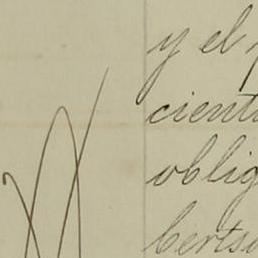 y el
cient
oblig
berts